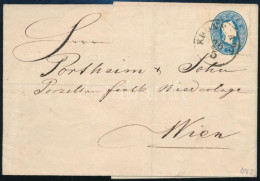 Herrn
Portheim & Sohn
Porzellan fabk Niederlage
Wien